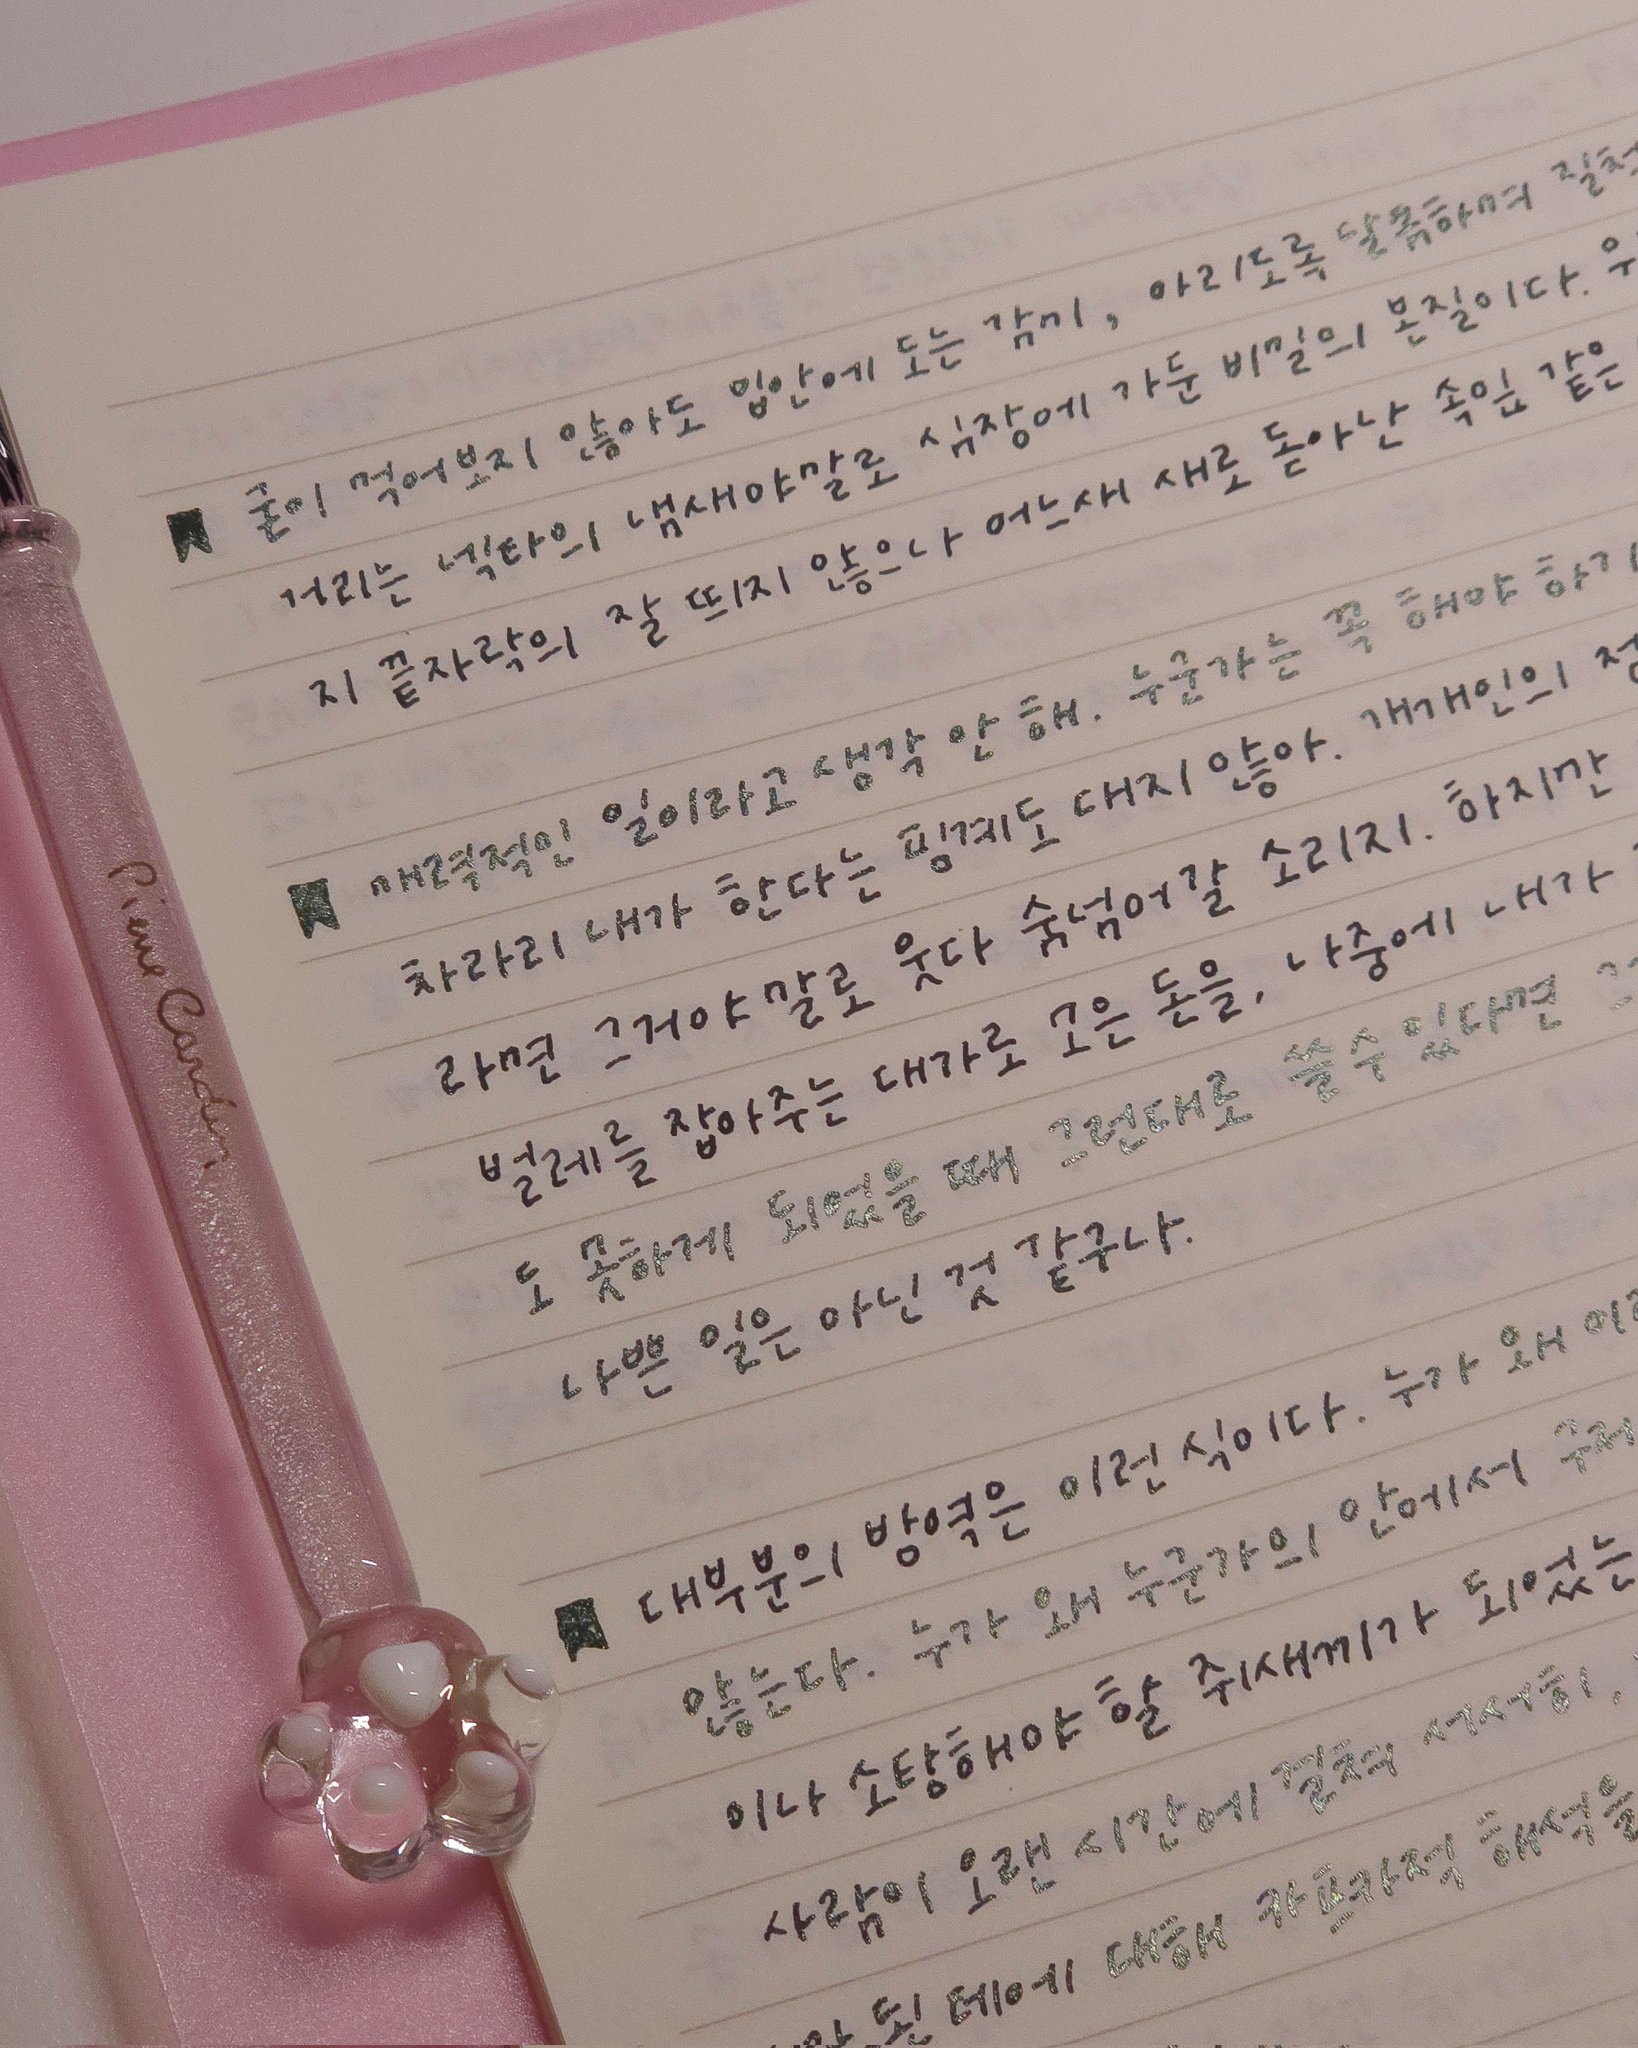 굳이 먹어보지 않아도 입안에 도는 감미, 아리도록 달콤하며
거리는 넥타의 냄새야말로 심장에 가둔 비밀의 본질이다.
지 끝자락의 잘 뜨지 않으나 어느새 새로 돋아난 속잎 같은
매력적인 일이라고 생각 안 해. 누군가는 꼭 해야
차라리 내가 한다는 핑계도 대지 않아. 개개인의
라면 그거야말로 웃다 숨넘어갈 소리지. 하지만
벌레를 잡아주는 대가로 모은 돈을, 나중에 내가
도 못하게 되었을 때 그런대로 쓸 수 있다면
나쁜 일은 아닌 것 같구나.
대부분의 방역은 이런 식이다. 누가 왜
않는다. 누가 왜 누군가의 안에서
이나 소탕해야 할 쥐새끼가 되었는
사람이 오랜 시간에 걸쳐 서서히,
된 데에 대해 카프카적 해석을
Pierre Cardin